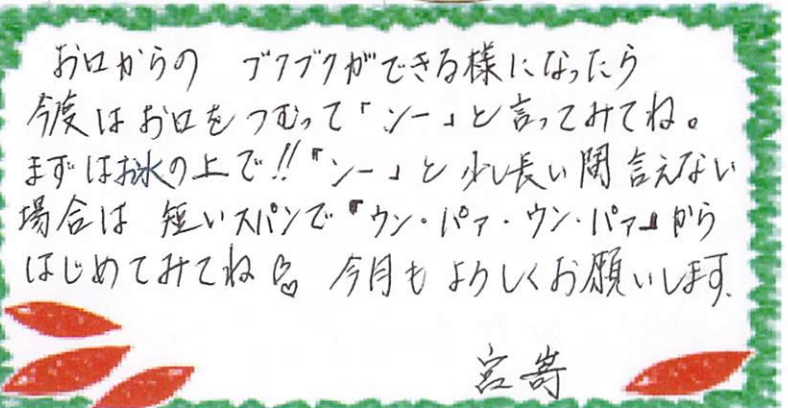 お口からの ブクブクができる様になったら
今度はお口をつむって「ンー」と言ってみてね。
まずはお水の上で!!「ンー」と少し長い間言えない
場合は 短いスパンで「ウン・パァ・ウン・パァ」から
はじめてみてね 今月もよろしくお願いします。
宮嵜